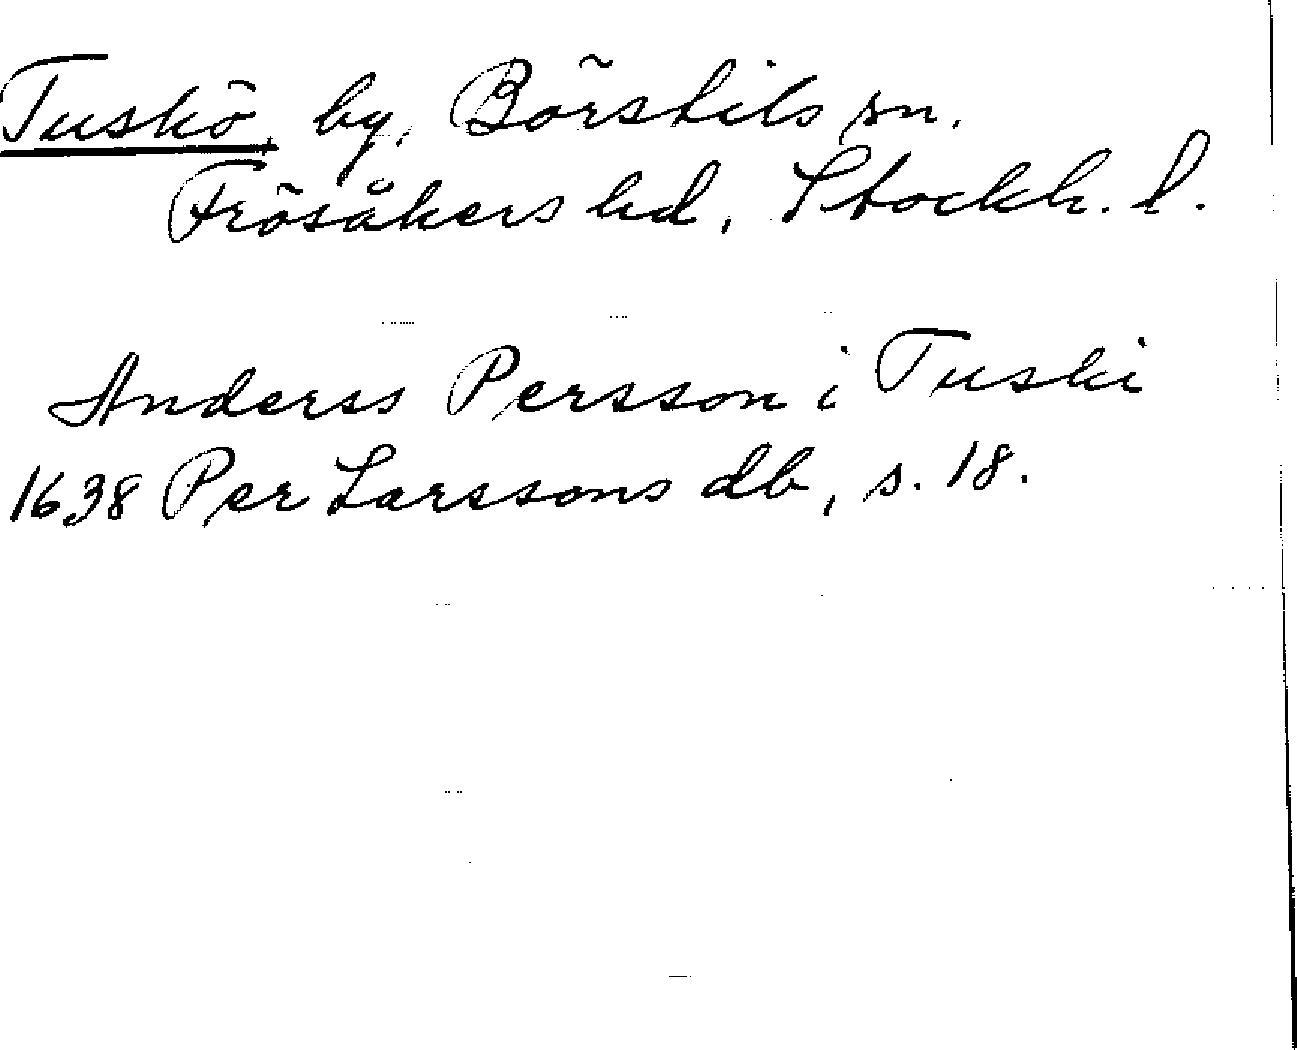 Tuskö, by, Börstils sn.
Frösåkers hd, Stockh. l.
Anderss Persson i Tuski
1638 Per Larssons db, s. 18.